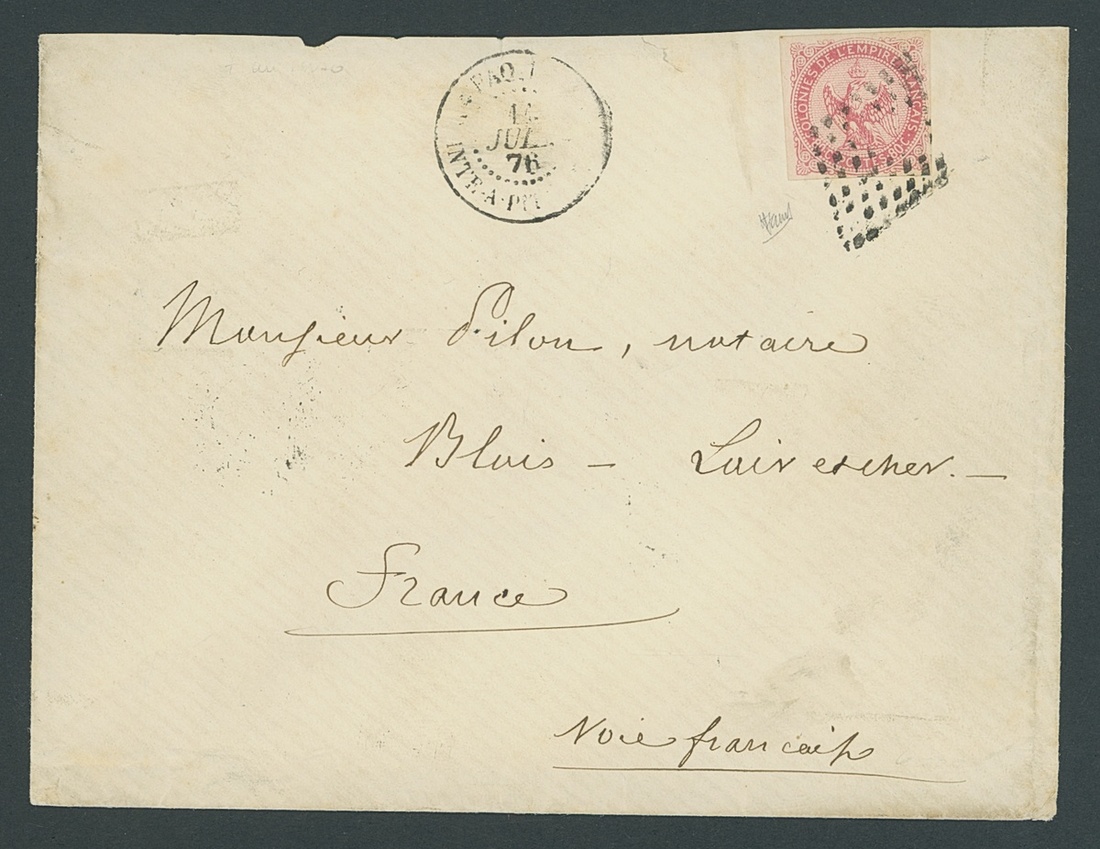 PAQ.
14
JUL.
76
INTE-A-PIT
COLONIES DE L'EMPIRE FRANÇAIS
Monsieur Pilon, notaire
Blois - Loir et cher. -
France
Voie français